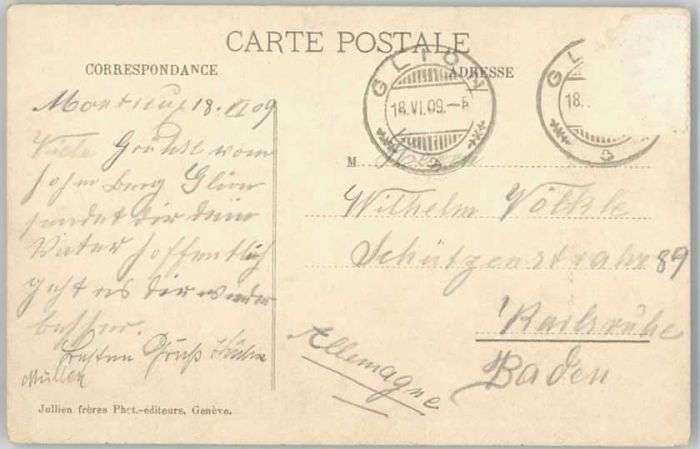 CARTE POSTALE
CORRESPONDANCE
ADRESSE
GLION
18.VI.09.
GL
18.
Montreux 18. VI 09
Viele Grüße vom
hohen Berg Glion
sendet dir dein
Vater hoffentlich
geht es dir wieder
besser.
Besten Gruß
Müller
M
Wilhelm Völkle
Schützenstraße 89
Karlsruhe
Baden
Allemagne
Jullien frères Phot.-editeurs, Genève.